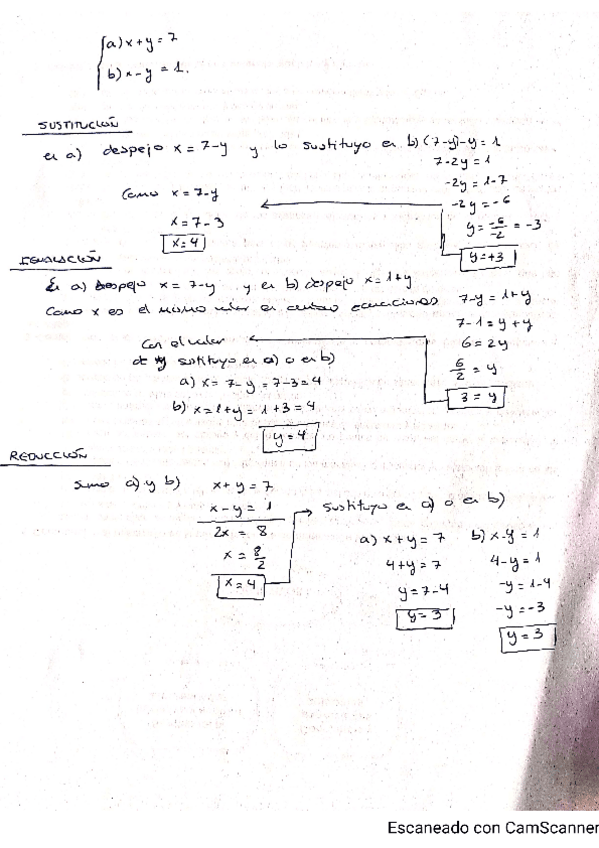 a) x + y = 7
b) x - y = 1.
SUSTITUCIÓN
en a) despejo x = 7-y y lo sustituyo en b) (7-y)-y = 1
7-2y = 1
-2y = 1-7
-2y = -6
y = -6/-2 = -3
y = +3
Como x = 7-y
x = 7-3
x = 4
IGUALACIÓN
En a) despejo x = 7-y y en b) despejo x = 1+y
Como x es el mismo valor en ambas ecuaciones 7-y = 1+y
7-1 = y+y
6 = 2y
6/2 = y
3 = y
Con el valor
de y sustituyo en a) o en b)
a) x = 7-y = 7-3 = 4
b) x = 1+y = 1+3 = 4
y = 4
REDUCCIÓN
Sumo a) y b) x + y = 7
x - y = 1
2x = 8
x = 8/2
x = 4
sustituyo en a) o en b)
a) x + y = 7
4 + y = 7
y = 7-4
y = 3
b) x-y = 1
4-y = 1
-y = 1-4
-y = -3
y = 3
Escaneado con CamScanner